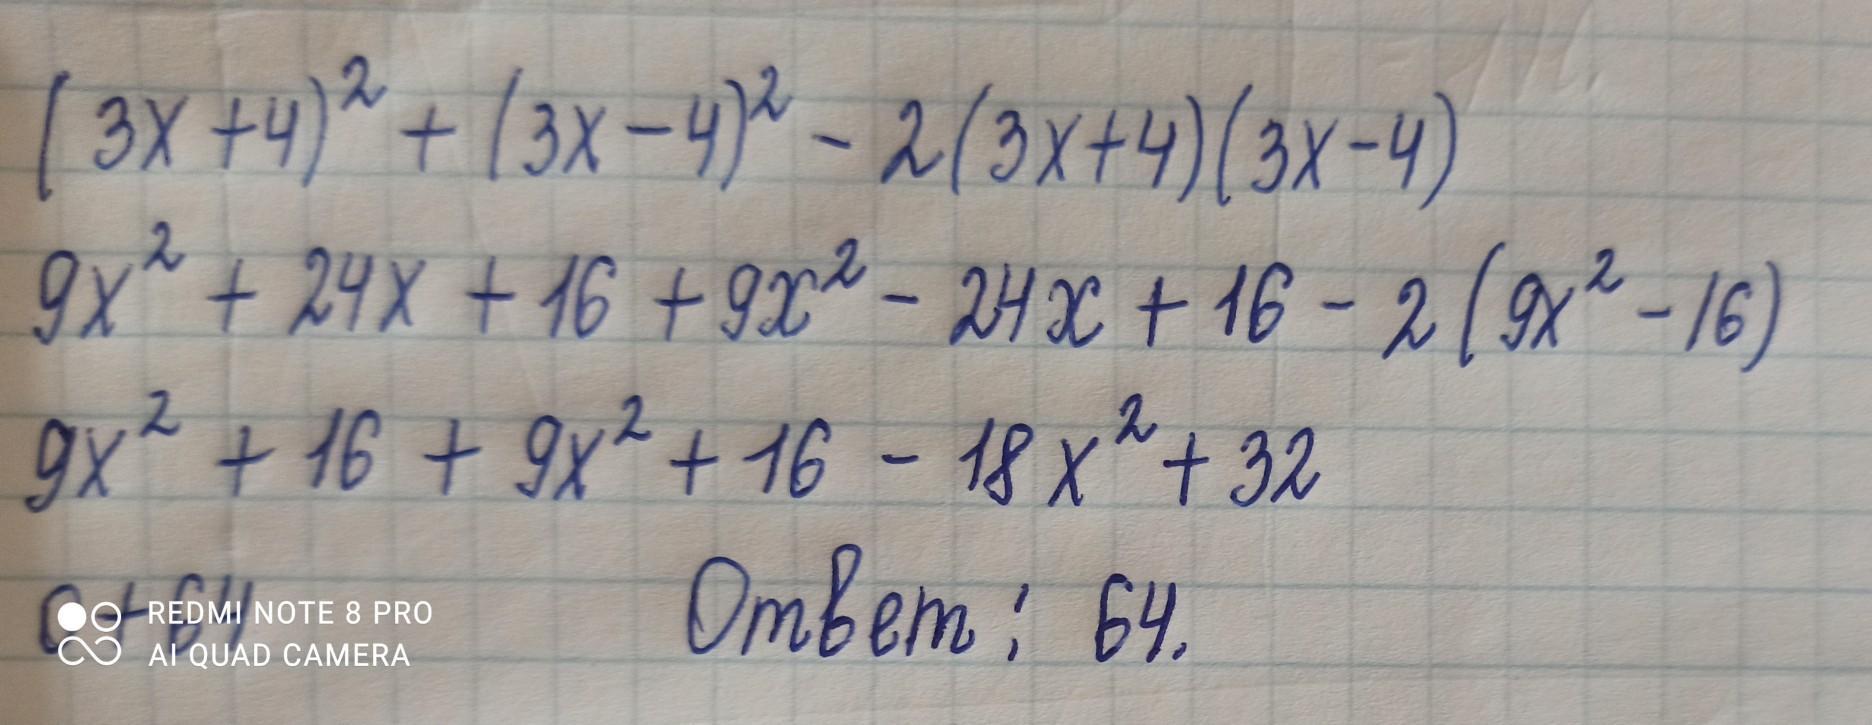 (3x+4)² + (3x-4)² - 2(3x+4)(3x-4)
9x² + 24x + 16 + 9x² - 24x + 16 - 2(9x² - 16)
9x² + 16 + 9x² + 16 - 18x² + 32
0+64 Ответ: 64.
REDMI NOTE 8 PRO
AI QUAD CAMERA